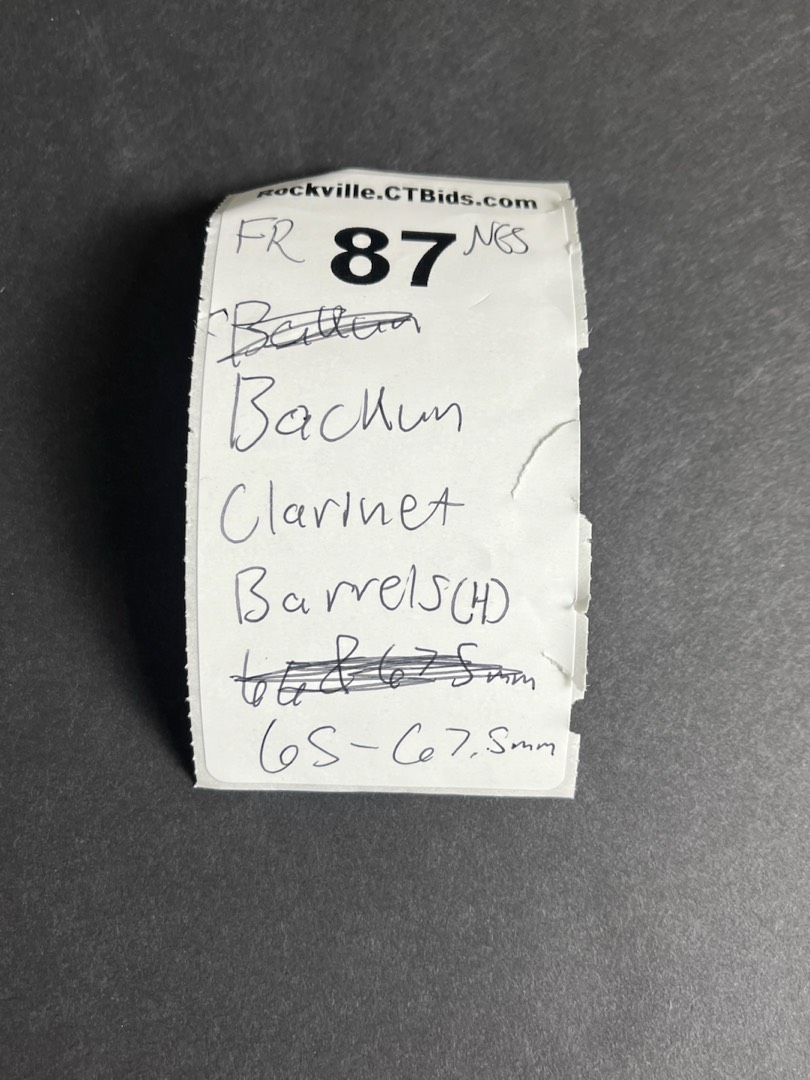 Rockville.CTBids.com
FR 87 NGS
Backun
Clarinet
Barrels (H)
66 & 67.5mm
65-67.5mm